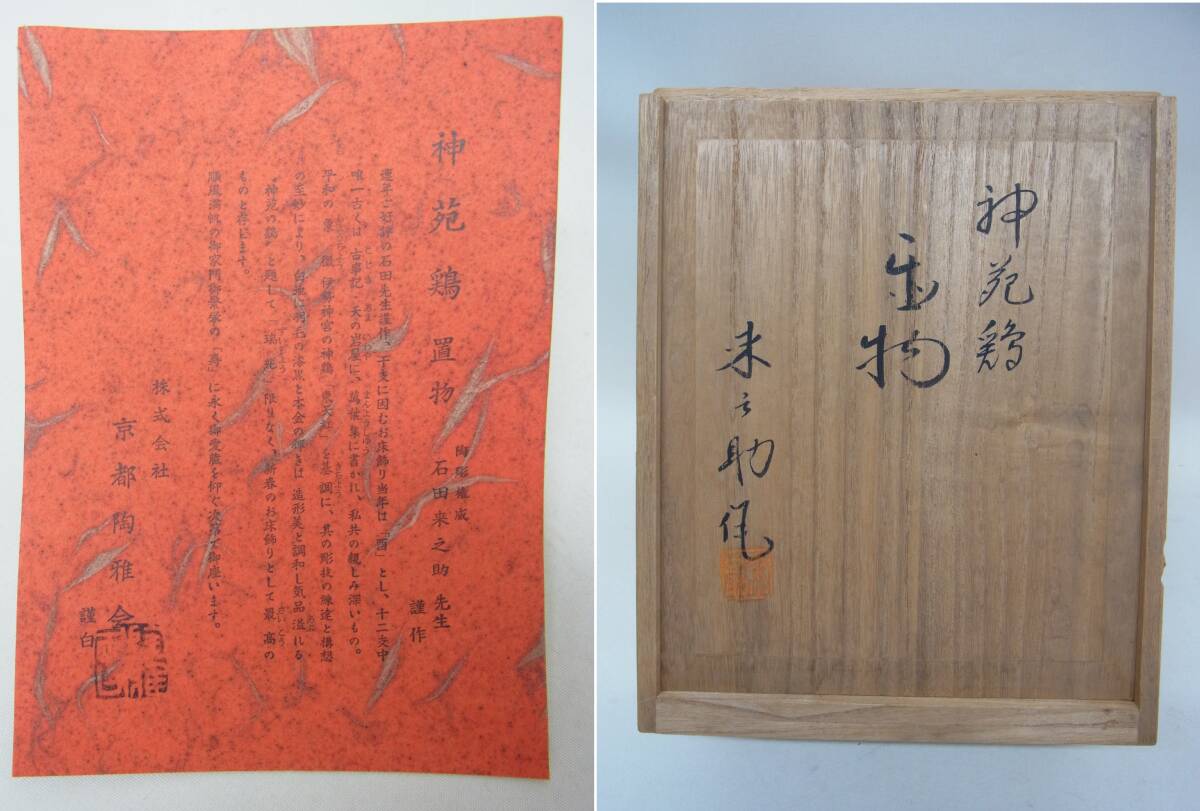 神苑鶏置物
陶彫権威
石田来之助 先生
謹作
連年ご好評の石田先生謹作、干支に因むお床飾り当年は「酉」とし、十二支中
唯一古くは古事記、天の岩屋に、萬葉集に書かれ、私共の親しみ深いもの。
平和の象徴 伊勢神宮の神鶏「東天紅」を基調に、其の彫技の練達と構想
の至妙により、白磁に羽毛の漆黒と本金の輝きは 造形美と調和し気品溢れる
“神苑の鶏”と題して、「瑞兆」限りなく、新春のお床飾りとして最高の
ものと存じます。
順風満帆の御家門御繁栄の「寿」に永く御愛蔵を仰ぐ次第で御座います。
株式会社
京都陶雅会
謹白
神苑鶏
置物
来之助作